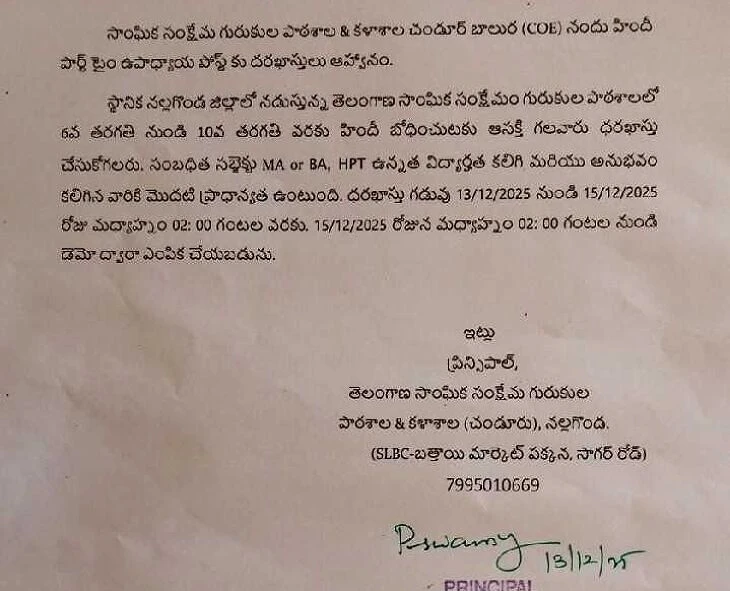 సాంఘిక సంక్షేమ గురుకుల పాఠశాల & కళాశాల చండూర్ బాలుర (COE) నందు హిందీ
పార్ట్ టైం ఉపాధ్యాయ పోస్ట్ కు దరఖాస్తులు ఆహ్వానం.
స్థానిక నల్లగొండ జిల్లాలో నడుస్తున్న తెలంగాణ సాంఘిక సంక్షేమం గురుకుల పాఠశాలలో
6వ తరగతి నుండి 10వ తరగతి వరకు హిందీ బోధించుటకు ఆసక్తి గలవారు ధరఖాస్తు
చేసుకోగలరు. సంబధిత సబ్జెక్టు MA or BA, HPT ఉన్నత విద్యార్హత కలిగి మరియు అనుభవం
కలిగిన వారికి మొదటి ప్రాధాన్యత ఉంటుంది. దరఖాస్తు గడువు 13/12/2025 నుండి 15/12/2025
రోజు మధ్యాహ్నం 02: 00 గంటల వరకు. 15/12/2025 రోజున మధ్యాహ్నం 02: 00 గంటల నుండి
డెమో ద్వారా ఎంపిక చేయబడును.
ఇట్లు
ప్రిన్సిపాల్,
తెలంగాణ సాంఘిక సంక్షేమ గురుకుల
పాఠశాల & కళాశాల (చండూరు), నల్లగొండ.
(SLBC-బత్తాయి మార్కెట్ పక్కన, సాగర్ రోడ్)
7995010669
P.swamy 13/12/25
PRINCIPAL